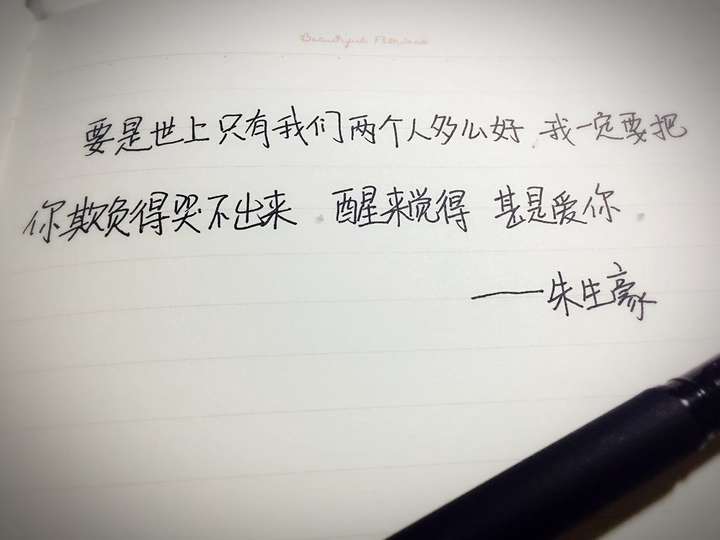 要是世上只有我们两个人多么好,我一定要把
你欺负得哭不出来。醒来觉得 甚是爱你。
——朱生豪